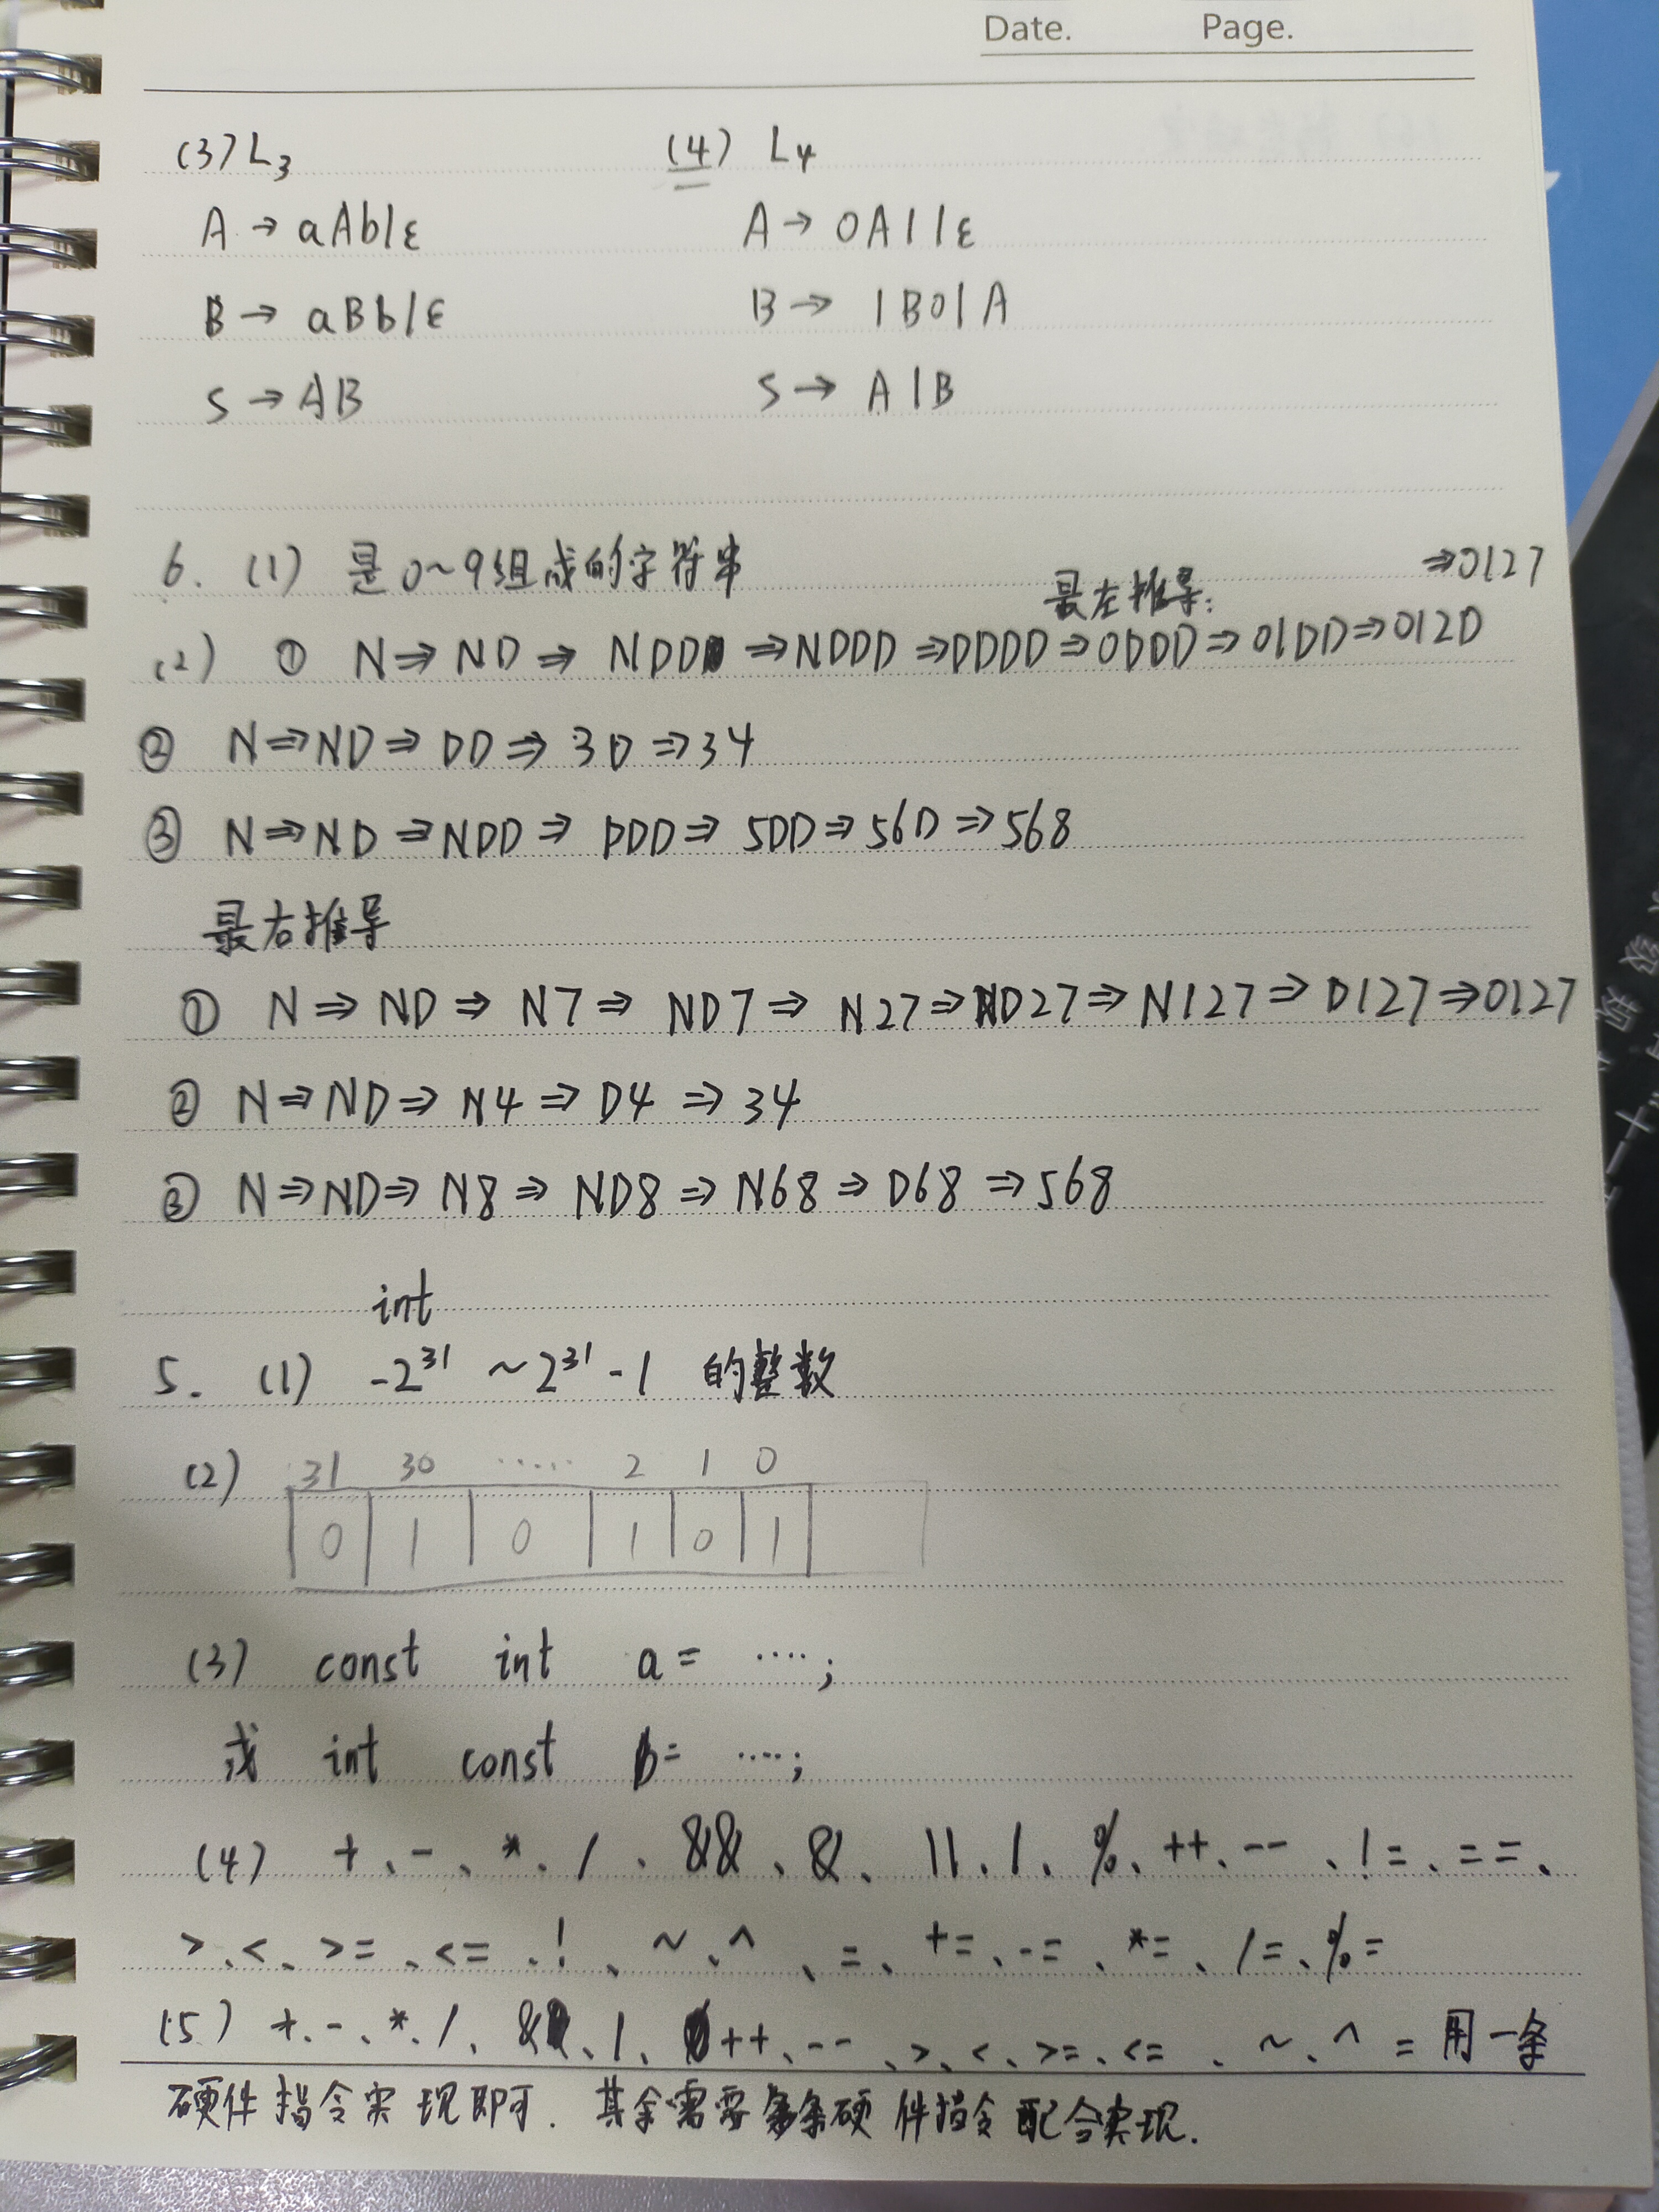 Date. Page.
(3) L₃ (4) L₄
A → aAb|ε A → 0A1|ε
B → aBb|ε B → 1B0|A
S → AB S → A|B
6. (1) 是0~9组成的字符串
最左推导: ⇒0127
(2) ① N⇒ND⇒NDD⇒NDDD⇒DDDD⇒0DDD⇒01DD⇒012D
② N⇒ND⇒DD⇒3D⇒34
③ N⇒ND⇒NDD⇒DDD⇒5DD⇒56D⇒568
最右推导
① N⇒ND⇒N7⇒ND7⇒N27⇒ND27⇒N127⇒D127⇒0127
② N⇒ND⇒N4⇒D4⇒34
③ N⇒ND⇒N8⇒ND8⇒N68⇒D68⇒568
int
5. (1) -2³¹ ~2³¹-1 的整数
(2) 31 30 ····· 2 1 0
0 1 0 1 0 1
(3) const int a= ····;
或 int const b= ····;
(4) +、-、*、/、&&、&、||、|、%、++、--、!=、==、
>、<、>=、<=、!、~、^、=、+=、-=、*=、/=、%=
(5) +、-、*、/、&、|、++、--、>、<、>=、<=、~、^、= 用一条
硬件指令实现即可. 其余需要多条硬件指令配合实现.